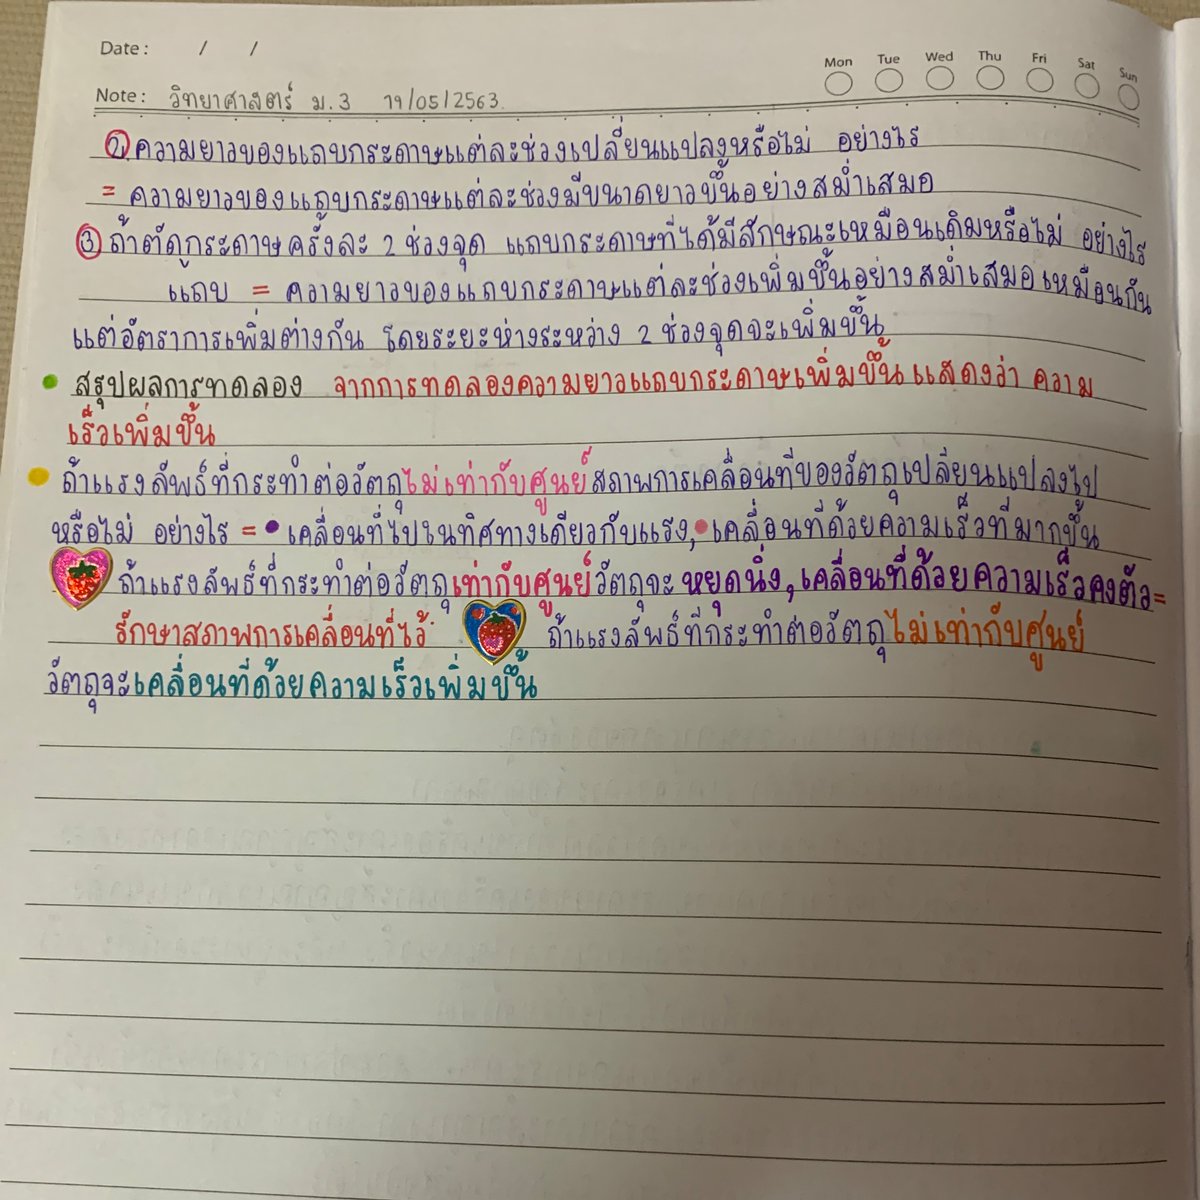 Date: / /
Mon Tue Wed Thu Fri Sat Sun
Note: วิทยาศาสตร์ ม.3 19/05/2563
② ความยาวของแถบกระดาษแต่ละช่วงเปลี่ยนแปลงหรือไม่ อย่างไร
= ความยาวของแถบกระดาษแต่ละช่วงมีขนาดยาวขึ้นอย่างสม่ำเสมอ
③ ถ้าตัดกระดาษครั้งละ 2 ช่วงจุด แถบกระดาษที่ได้มีลักษณะเหมือนเดิมหรือไม่ อย่างไร
แถบ = ความยาวของแถบกระดาษแต่ละช่วงเพิ่มขึ้นอย่างสม่ำเสมอเหมือนกัน
แต่อัตราการเพิ่มต่างกัน โดยระยะห่างระหว่าง 2 ช่วงจุดจะเพิ่มขึ้น
สรุปผลการทดลอง จากการทดลองความยาวแถบกระดาษเพิ่มขึ้นแสดงว่า ความ
เร็วเพิ่มขึ้น
ถ้าแรงลัพธ์ที่กระทำต่อวัตถุไม่เท่ากับศูนย์สภาพการเคลื่อนที่ของวัตถุเปลี่ยนแปลงไป
หรือไม่ อย่างไร = • เคลื่อนที่ไปในทิศทางเดียวกับแรง, • เคลื่อนที่ด้วยความเร็วที่มากขึ้น
ถ้าแรงลัพธ์ที่กระทำต่อวัตถุเท่ากับศูนย์วัตถุจะหยุดนิ่ง, เคลื่อนที่ด้วยความเร็วคงตัว =
รักษาสภาพการเคลื่อนที่ไว้ ถ้าแรงลัพธ์ที่กระทำต่อวัตถุไม่เท่ากับศูนย์
วัตถุจะเคลื่อนที่ด้วยความเร็วเพิ่มขึ้น